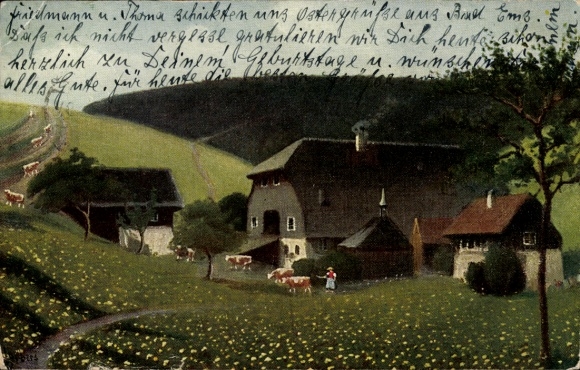 Friedmann u. Thoma schickten uns Ostergrüße aus Bad Ems.
Daß ich nicht vergesse gratulieren wir Dich heute schon
herzlich zu Deinem Geburtstage u. wünschen
alles Gute. Für heute die besten Grüße